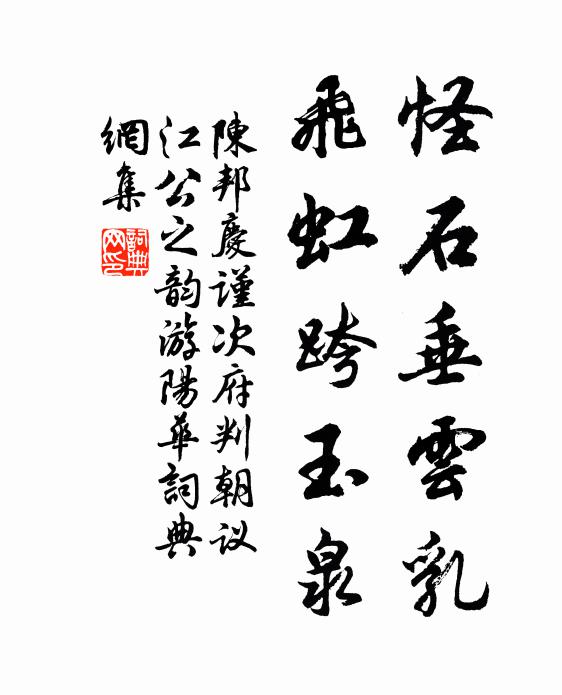 怪石垂雲乳
飛虹跨玉泉
陳邦慶謹次府判朝议
江公之韵游陽華詞典
網集
詞典
网印